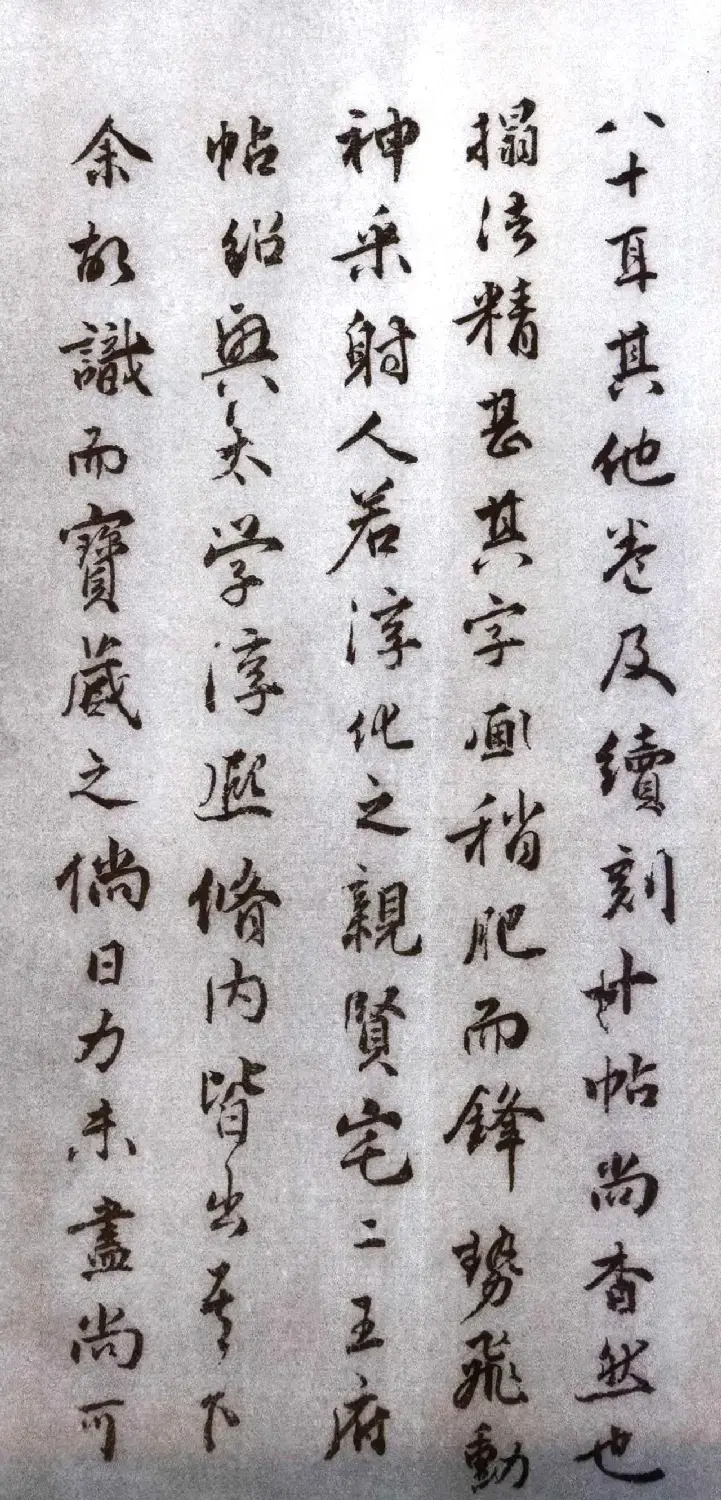 八十耳其他卷及續刻廿帖尚杳然也
搨法精甚其字画稍肥而鋒勢飛動
神采射人若淳化之親賢宅二王府
帖紹興太学淳熙脩内皆出其下
余故識而寶藏之倘日力未盡尚可